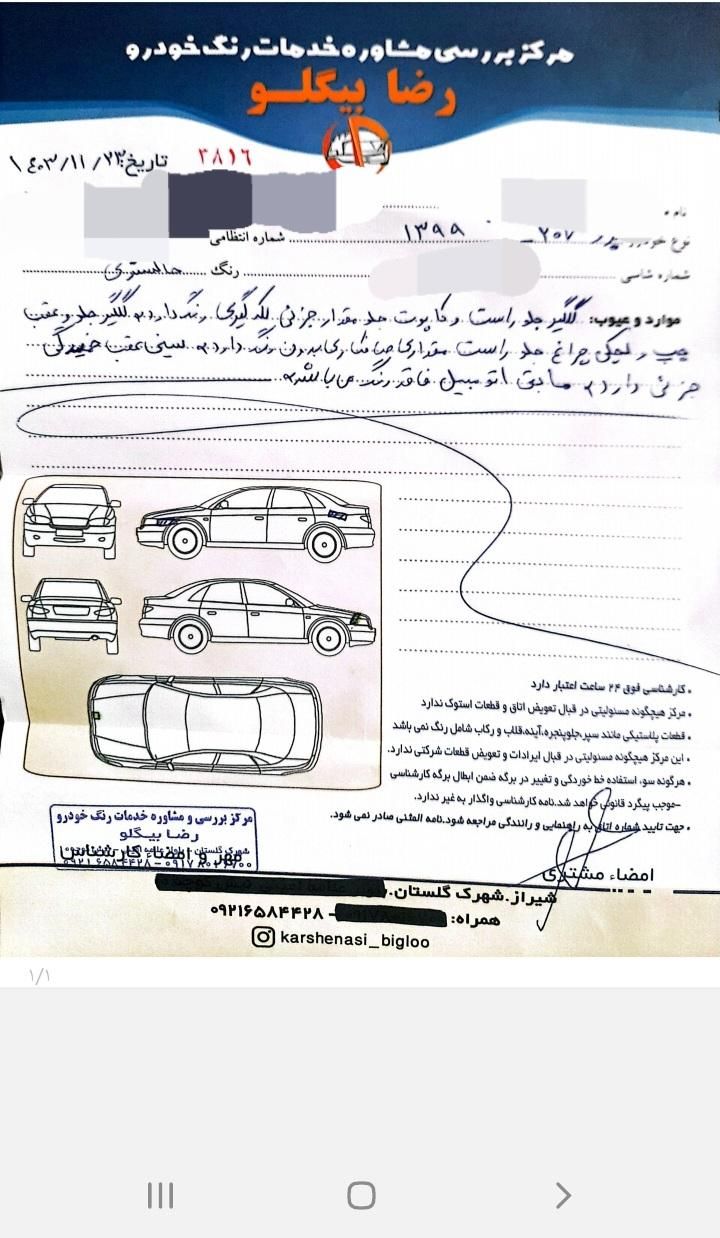 مرکز بررسی مشاوره خدمات رنگ خودرو
رضا بیگلو
تاریخ: ۱۴۰۳/۱۱/۲۳ ۳۸۱۶
نام
شماره انتظامی
نوع خودرو ۲۰۷ ۱۳۹۹
شماره شاسی رنگ خاکستری
موارد و عیوب: گلگیر جلو راست و کاپوت جلو مقدار جزئی لکه گیری رنگ دارد، گلگیر جلو و عقب
چپ و لچکی چراغ جلو راست مقداری صافکاری بدون رنگ دارد، سینی عقب خمیدگی
جزئی دارد، مابقی اتومبیل فاقد رنگ می باشد،
• کارشناسی فوق ۲۴ ساعت اعتبار دارد
• مرکز هیچگونه مسئولیتی در قبال تعویض اتاق و قطعات استوک ندارد
• قطعات پلاستیکی مانند سپر،جلوپنجره،آینه،قلاب و رکاب شامل رنگ نمی باشد
• این مرکز هیچگونه مسئولیتی در قبال ایرادات و تعویض قطعات شرکتی ندارد.
• هرگونه سو، استفاده خط خوردگی و تغییر در برگه ضمن ابطال برگه کارشناسی
-موجب پیگرد قانونی خواهد شد.نامه کارشناسی واگذار به غیر ندارد.
• جهت تایید شماره اتاق به راهنمایی و رانندگی مراجعه شود.نامه المثنی صادر نمی شود.
مرکز بررسی و مشاوره خدمات رنگ خودرو
رضا بیگلو
شهرک گلستان
مهر و امضاء کارشناس
امضاء مشتری
شیراز.شهرک گلستان.
همراه: - ۰۹۲۱۶۵۸۴۴۲۸
karshenasi_bigloo
۱/۱